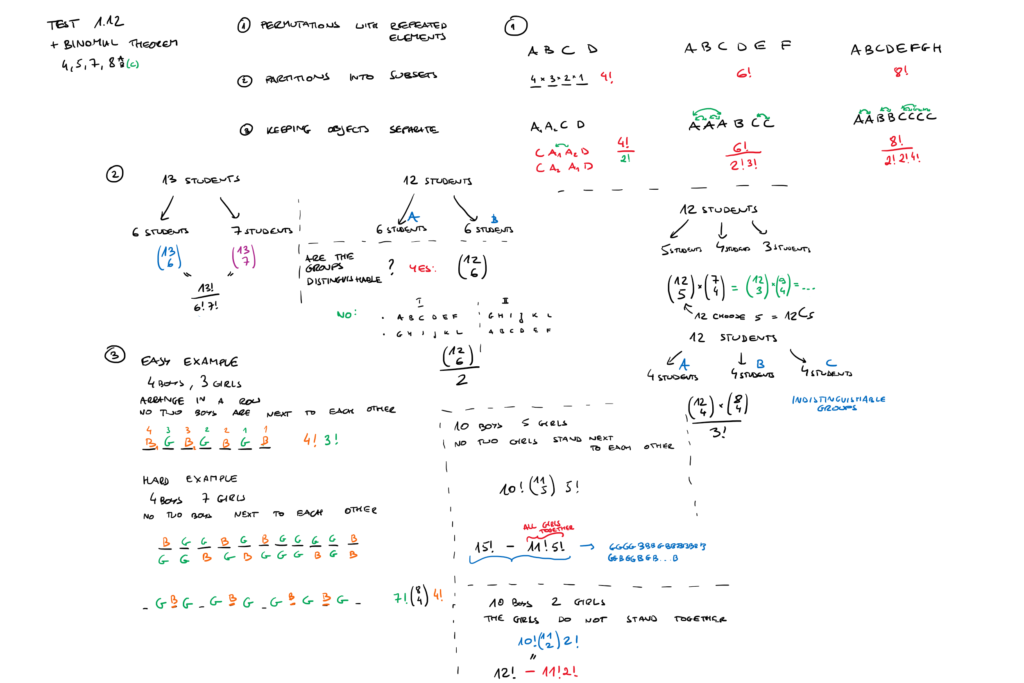 TEST 1.12
+ BINOMIAL THEOREM
4, 5, 7, 8
(c)
① PERMUTATIONS WITH REPEATED
ELEMENTS
② PARTITIONS INTO SUBSETS
③ KEEPING OBJECTS SEPARATE
①
A B C D
4 × 3 × 2 × 1 4!
A B C D E F
6!
A B C D E F G H
8!
A₁ A₂ C D
C A₁ A₂ D
C A₂ A₁ D
4!
2!
A A A B C C
6!
2! 3!
A A B B C C C C
8!
2! 2! 4!
②
13 STUDENTS
6 STUDENTS 7 STUDENTS
(13 6) = (13 7)
13!
6! 7!
12 STUDENTS
A B
6 STUDENTS 6 STUDENTS
ARE THE
GROUPS
DISTINGUISHABLE
? YES: (12 6)
NO:
I II
· A B C D E F G H I J K L
· G H I J K L A B C D E F
(12 6)
2
12 STUDENTS
5 STUDENTS 4 STUDENTS 3 STUDENTS
(12 5) × (7 4) = (12 3) × (9 4) = ...
12 CHOOSE 5 = 12C5
12 STUDENTS
A B C
4 STUDENTS 4 STUDENTS 4 STUDENTS
(12 4) × (8 4)
3!
INDISTINGUISHABLE
GROUPS
③
EASY EXAMPLE
4 BOYS, 3 GIRLS
ARRANGE IN A ROW
NO TWO BOYS ARE NEXT TO EACH OTHER
4 3 3 2 2 1 1
B G B G B G B 4! 3!
HARD EXAMPLE
4 BOYS 7 GIRLS
NO TWO BOYS NEXT TO EACH OTHER
B G G B G B G G G G B
G G B G B G G G B G B
_ G B G _ G B G _ G B G B G _ 7! (8 4) 4!
10 BOYS 5 GIRLS
NO TWO GIRLS STAND NEXT
TO EACH OTHER
10! (11 5) 5!
ALL GIRLS
TOGETHER
15! - 11! 5! →
10 BOYS 2 GIRLS
THE GIRLS DO NOT STAND TOGETHER
10! (11 2) 2!
=
12! - 11! 2!